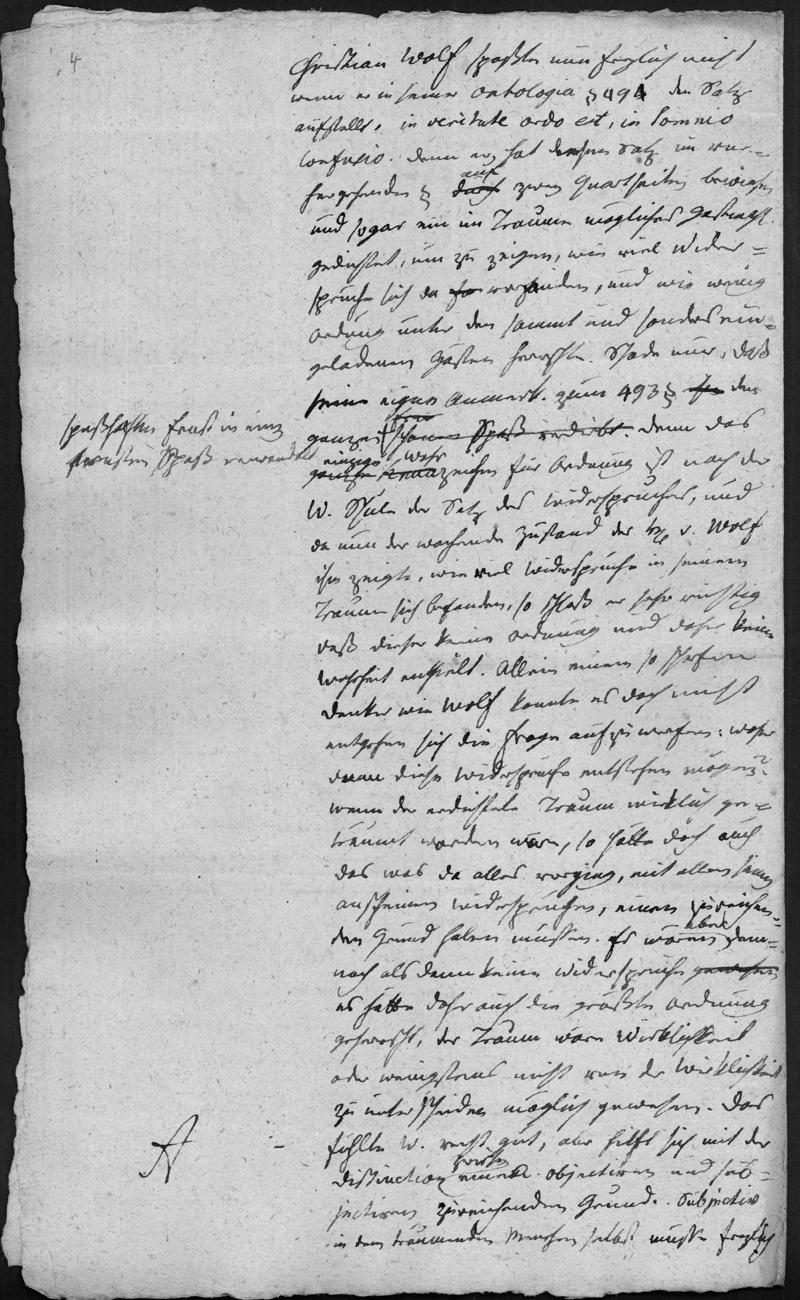 4
Christian Wolf spaßte nun freylich nicht
wenn er in seiner ontologia § 494 den Satz
aufstellt, in veritate ordo est, in somnio
confusio. denn er hat diesen Satz im vor-
hergehenden § durch auf zwey Quartseiten bewiesen
und sogar ein im Traume mögliches Gastmahl
gedichtet, um zu zeigen, wie viel Wider-
sprüche sich da vorfinden, und wie wenig
ordnung unter den sammt und sonders ein-
geladenen Gästen herrschte. Schade nur, daß
seine eigne Anmerk. zum 493 § den
ganzen schönen Spaß verdirbt. denn das
spaßhaften Ernst in einen
ernsten Spaß verwandelt
einzige wahre
ganze Kennzeichen für Ordnung ist nach der
W. Schule der Satz des Widerspruches, und
da nun der wachende Zustand des H. v. Wolf
ihm zeigte, wie viel Widersprüche in seinem
Traume sich befanden, so schloß er sehr richtig
daß dieser keine ordnung und daher keine
Wahrheit enthielt. Allein einem so scharfen
Denker wie Wolf konnte es doch nicht
entgehen sich die Frage aufzuwerfen: woher
denn diese Widersprüche entstehen mögen?
wenn der erdichtete Traum wirklich ge-
träumt worden wäre, so hätte doch auch
das was da alles vorging, mit allen seinen
anscheinen Widersprüchen, einen zureichen-
den Grund haben müssen. Es wären aber dem-
nach als dann keine Widersprüche gewesen
es hätte daher auch die größte Ordnung
geherrscht, der Traum wäre Wirklichkeit
oder wenigstens nicht von der Wirklichkeit
zu unterscheiden möglich gewesen. Das
fühlte W. recht gut, aber hilft sich mit der
A
Distinction zwischen einem objectiven und sub-
jectiven zureichenden Grund. Subjectiv
in dem träumenden Menschen selbst müsse freylich